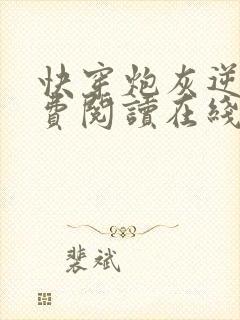 快穿炮灰逆
費閱讀在綫
裴斌